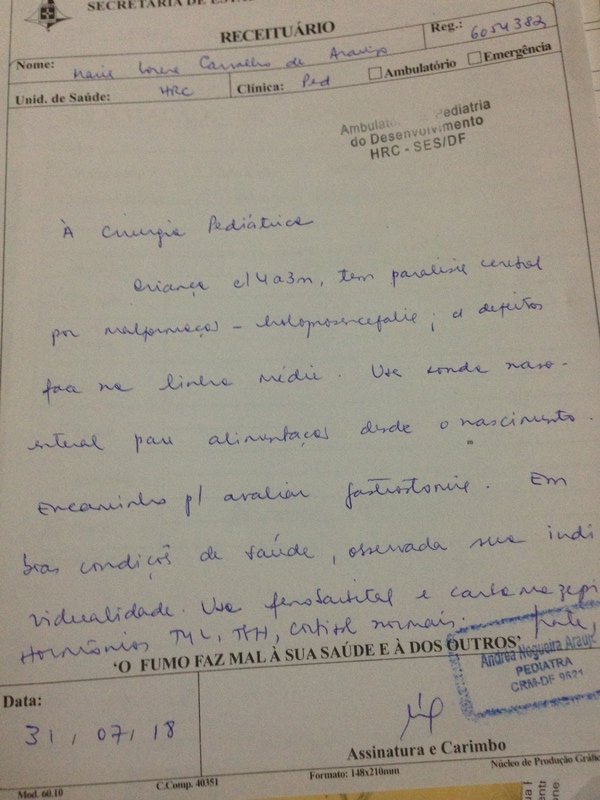 SECRETARIA DE ESTA
RECEITUÁRIO
Reg.: 6054382
Nome: Maria Lorena Carvalho de Araujo
Ambulatório Emergência
Unid. de Saúde: HRC Clínica: Ped
Ambulat Pediatria
do Desenvolvimento
HRC - SES/DF
À Cirurgia Pediátrica
Criança c/ 4a3m, tem paralisia cerebral
por malformação - holoprosencefalia; c/ defeitos
face na linha média. Usa sonda naso-
enteral para alimentação desde o nascimento.
Encaminho p/ avaliar gastrostomia. Em
boas condições de saúde, observada sua indi
vidualidade. Usa fenobarbital e carbamazepi
Hormônios T4L, TSH, cortisol normais.
'O FUMO FAZ MAL À SUA SAÚDE E À DOS OUTROS'
Andrea Nogueira Araujo
PEDIATRA
CRM-DF 9621
Data:
31/07/18
Assinatura e Carimbo
Mod. 60.10 C.Comp. 40351 Formato: 148x210mm Núcleo de Produção Gráfic